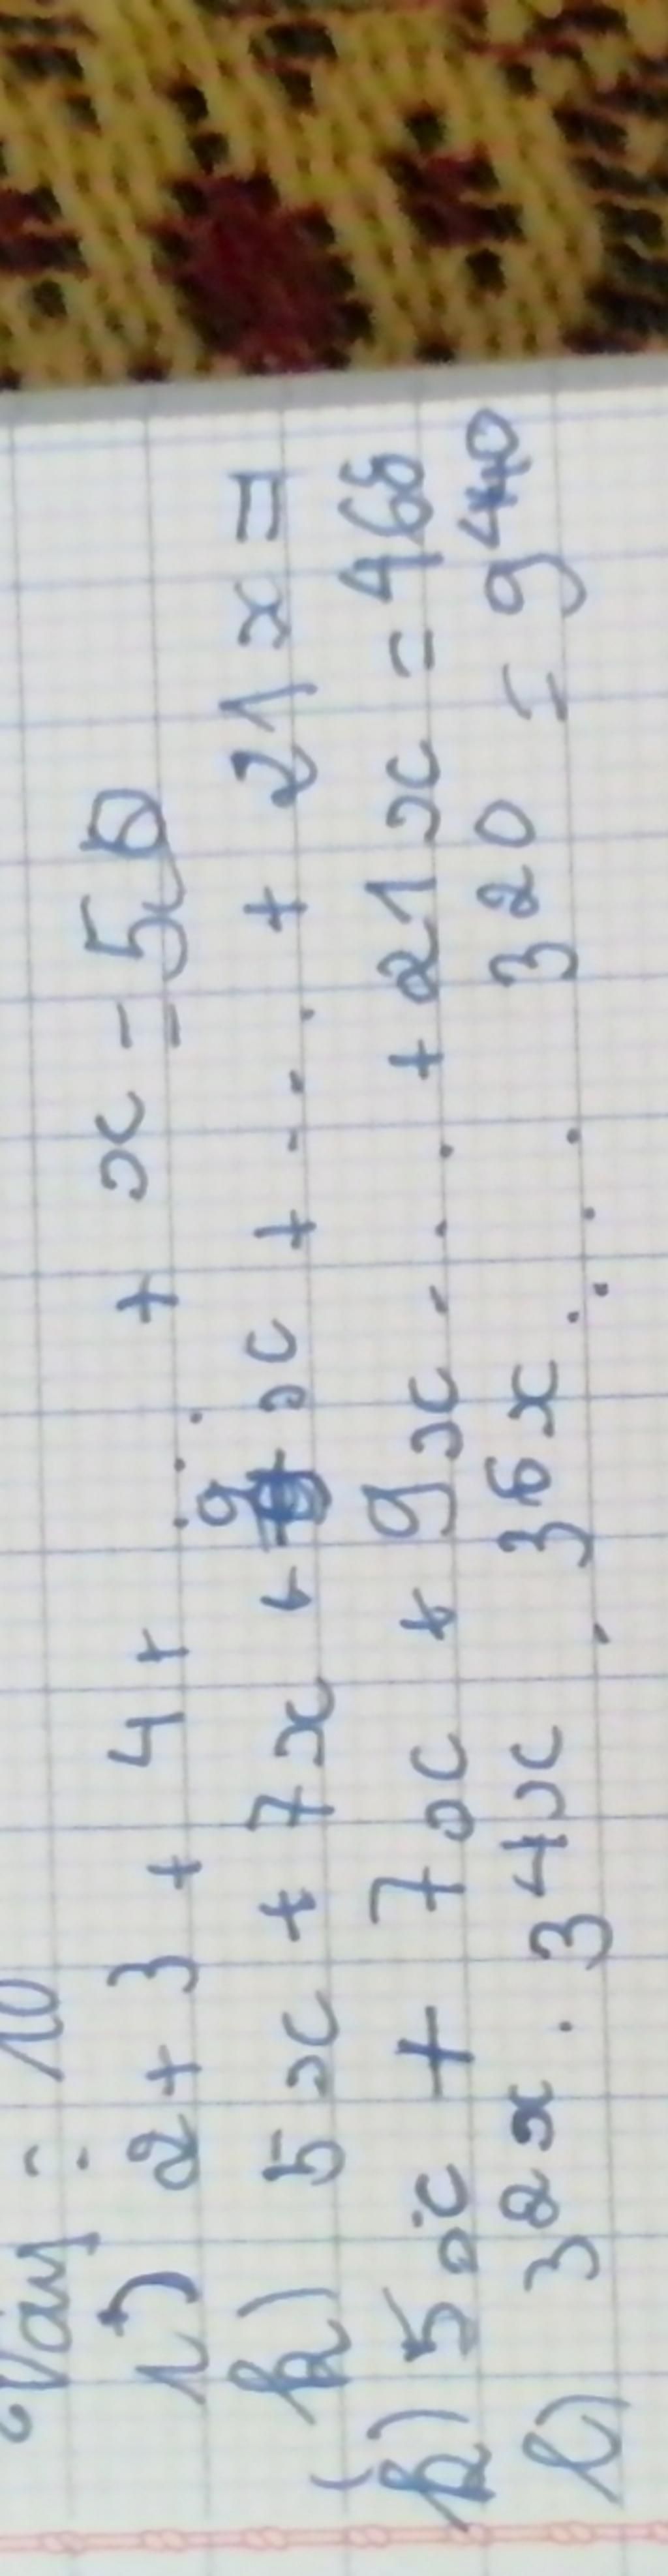 Vậy: 10
1) 2 + 3 + 4 + ... + x = 50
k) 5x + 7x + 9x + .... + 21x =
k) 5x + 7x + 9x ... + 21x = 468
l) 32x . 34x . 36x .... 320 = 940